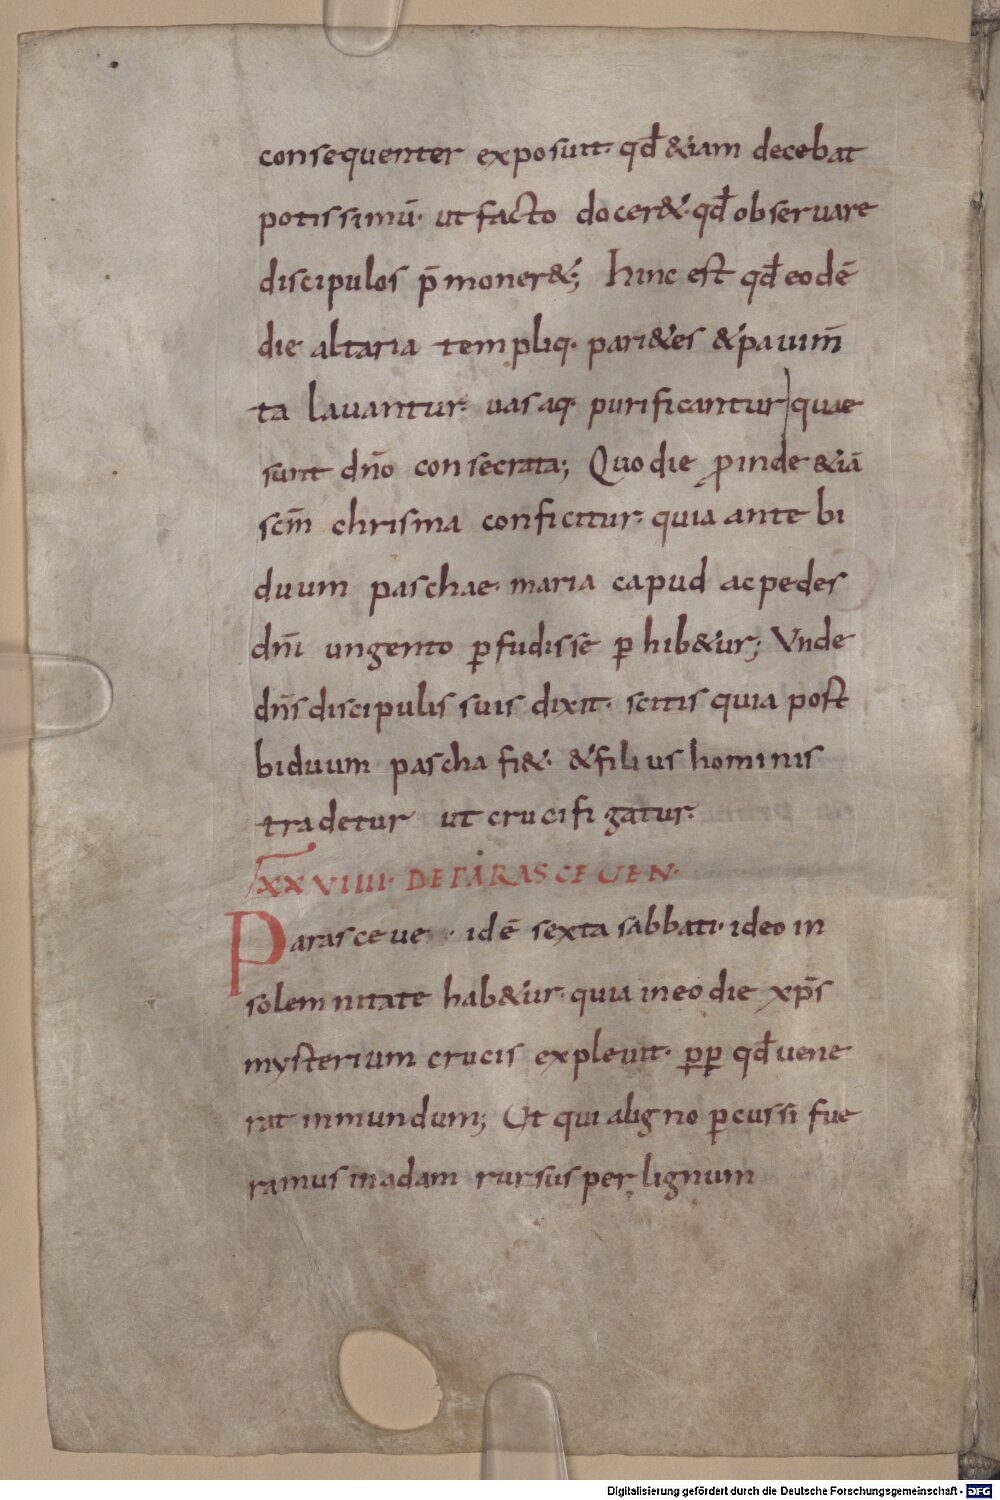 consequenter exposuit· qđ &iam decebat
potissimū· ut facto docer&· qđ observare
discipulos p̄moner&; hinc est qđ eodē
die altaria templiq· pari&es & pavim̄
ta lavantur· vasaq· purificantur quae
sunt dn̄o consecrata; Quo die ꝓinde &iā
scm̄ chrisma conficitur· quia ante bi
duum paschae· maria capud ac pedes
dn̄i ungento ꝑfudisse ꝑhib&ur; Vnde
dn̄s discipulis suis dixit· scitis quia post
biduum pascha fi&· & filius hominis
tradetur ut crucifigatur·
XXVIIII· DE PARASCEUEN·
Parasceue· idē sexta sabbati· ideo in
solemnitate hab&ur· quia in eo die xp̄s
mysterium crucis explevit· ꝓꝑ qđ vene
rat in mundum; Ut qui a ligno ꝑcussi fue
ramus in adam rursus per lignum
Digitalisierung gefördert durch die Deutsche Forschungsgemeinschaft - DFG